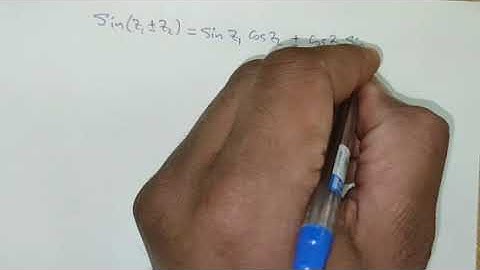 Sin(z₁ ± z₂) = Sin z₁ Cos z₂ + Cos z